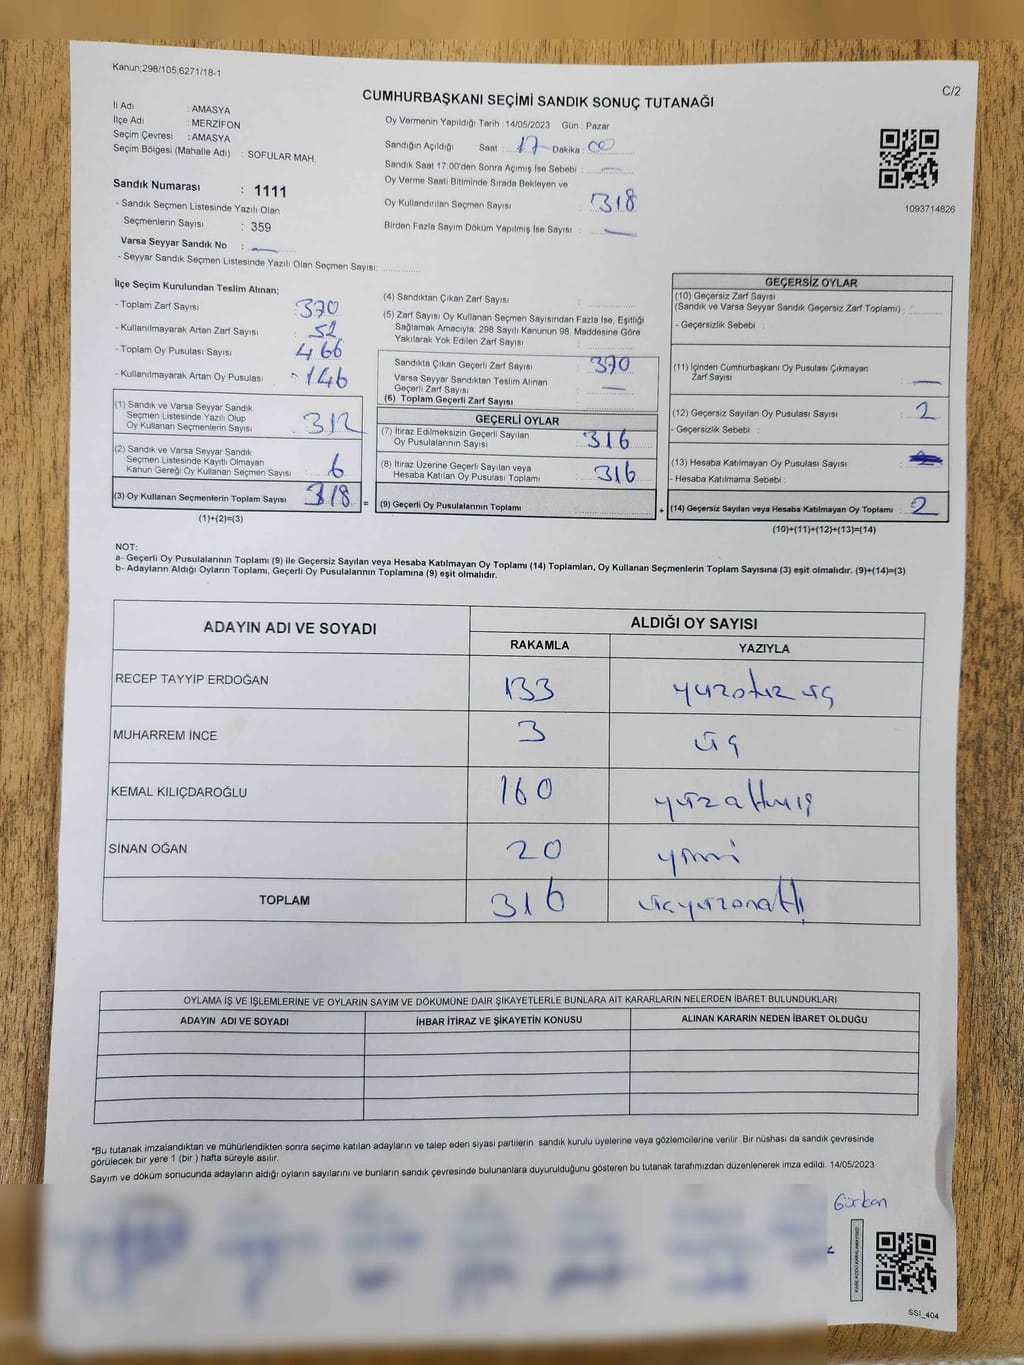 Kanun:298/105;6271/18-1
C/2
CUMHURBAŞKANI SEÇİMİ SANDIK SONUÇ TUTANAĞI
İl Adı : AMASYA
İlçe Adı : MERZİFON
Seçim Çevresi : AMASYA
Seçim Bölgesi (Mahalle Adı) : SOFULAR MAH.
Sandık Numarası : 1111
- Sandık Seçmen Listesinde Yazılı Olan
Seçmenlerin Sayısı : 359
Varsa Seyyar Sandık No : —
- Seyyar Sandık Seçmen Listesinde Yazılı Olan Seçmen Sayısı:
Oy Vermenin Yapıldığı Tarih : 14/05/2023 Gün : Pazar
Sandığın Açıldığı Saat : 17 Dakika : 00
Sandık Saat 17:00'den Sonra Açımış İse Sebebi : —
Oy Verme Saati Bitiminde Sırada Bekleyen ve
Oy Kullandırılan Seçmen Sayısı : 318
Birden Fazla Sayım Döküm Yapılmış İse Sayısı : —
1093714826
İlçe Seçim Kurulundan Teslim Alınan;
- Toplam Zarf Sayısı : 370
- Kullanılmayarak Artan Zarf Sayısı : 52
- Toplam Oy Pusulası Sayısı : 466
- Kullanılmayarak Artan Oy Pusulası : 146
(1) Sandık ve Varsa Seyyar Sandık
Seçmen Listesinde Yazılı Olup
Oy Kullanan Seçmenlerin Sayısı : 312
(2) Sandık ve Varsa Seyyar Sandık
Seçmen Listesinde Kayıtlı Olmayan
Kanun Gereği Oy Kullanan Seçmen Sayısı : 6
(3) Oy Kullanan Seçmenlerin Toplam Sayısı : 318 =
(1)+(2)=(3)
(4) Sandıktan Çıkan Zarf Sayısı :
(5) Zarf Sayısı Oy Kullanan Seçmen Sayısından Fazla İse, Eşitliği
Sağlamak Amacıyla, 298 Sayılı Kanunun 98. Maddesine Göre
Yakılarak Yok Edilen Zarf Sayısı :
Sandıkta Çıkan Geçerli Zarf Sayısı : 370
Varsa Seyyar Sandıktan Teslim Alınan
Geçerli Zarf Sayısı : —
(6) Toplam Geçerli Zarf Sayısı :
GEÇERLİ OYLAR
(7) İtiraz Edilmeksizin Geçerli Sayılan
Oy Pusulalarının Sayısı : 316
(8) İtiraz Üzerine Geçerli Sayılan veya
Hesaba Katılan Oy Pusulası Toplamı : 316
(9) Geçerli Oy Pusulalarının Toplamı : +
GEÇERSİZ OYLAR
(10) Geçersiz Zarf Sayısı
(Sandık ve Varsa Seyyar Sandık Geçersiz Zarf Toplamı) :
- Geçersizlik Sebebi :
(11) İçinden Cumhurbaşkanı Oy Pusulası Çıkmayan
Zarf Sayısı : —
(12) Geçersiz Sayılan Oy Pusulası Sayısı : 2
- Geçersizlik Sebebi :
(13) Hesaba Katılmayan Oy Pusulası Sayısı :
- Hesaba Katılmama Sebebi :
(14) Geçersiz Sayılan veya Hesaba Katılmayan Oy Toplamı : 2
(10)+(11)+(12)+(13)=(14)
NOT:
a- Geçerli Oy Pusulalarının Toplamı (9) ile Geçersiz Sayılan veya Hesaba Katılmayan Oy Toplamı (14) Toplamları, Oy Kullanan Seçmenlerin Toplam Sayısına (3) eşit olmalıdır. (9)+(14)=(3)
b- Adayların Aldığı Oyların Toplamı, Geçerli Oy Pusulalarının Toplamına (9) eşit olmalıdır.
ADAYIN ADI VE SOYADI ALDIĞI OY SAYISI
RAKAMLA YAZIYLA
RECEP TAYYİP ERDOĞAN 133 yüzotuz üç
MUHARREM İNCE 3 üç
KEMAL KILIÇDAROĞLU 160 yüzaltmış
SİNAN OĞAN 20 yirmi
TOPLAM 316 üçyüzonaltı
OYLAMA İŞ VE İŞLEMLERİNE VE OYLARIN SAYIM VE DÖKÜMÜNE DAİR ŞİKAYETLERLE BUNLARA AİT KARARLARIN NELERDEN İBARET BULUNDUKLARI
ADAYIN ADI VE SOYADI İHBAR İTİRAZ VE ŞİKAYETİN KONUSU ALINAN KARARIN NEDEN İBARET OLDUĞU
*Bu tutanak imzalandıktan ve mühürlendikten sonra seçime katılan adayların ve talep eden siyasi partilerin sandık kurulu üyelerine veya gözlemcilerine verilir. Bir nüshası da sandık çevresinde
görülecek bir yere 1 (bir) hafta süreyle asılır.
Sayım ve döküm sonucunda adayların aldığı oyların sayılarını ve bunların sandık çevresinde bulunanlara duyurulduğunu gösteren bu tutanak tarafımızdan düzenlenerek imza edildi. 14/05/2023
Gürkan
KARE KODU KARALAMAYINIZ!
SSI_404